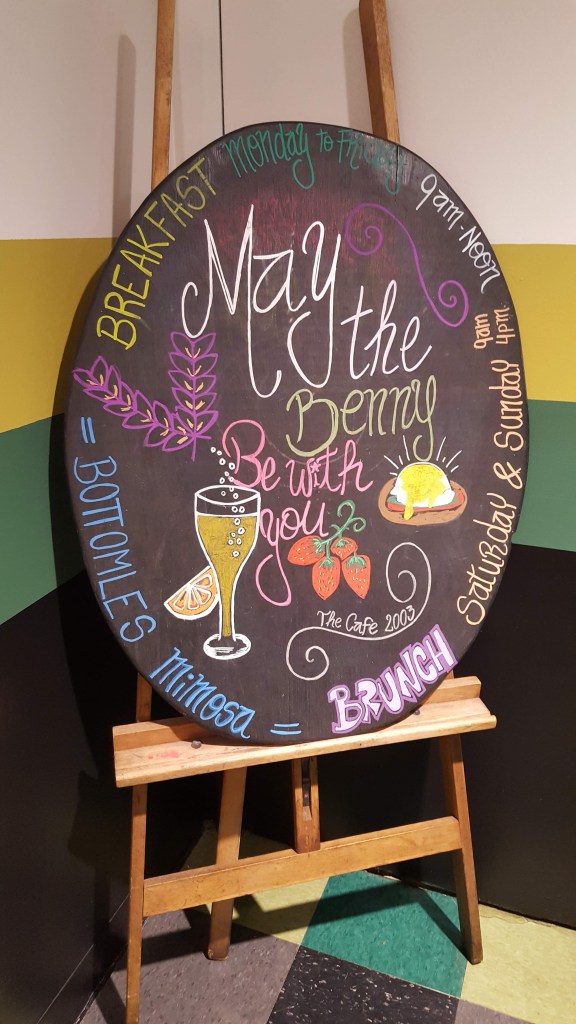 BREAKFAST
Monday to Friday
9am-Noon
May
the
Benny
Be with
you
The Cafe 2003
Saturday & Sunday
9am
4pm.
BRUNCH
= BOTTOMLES
Mimosa =